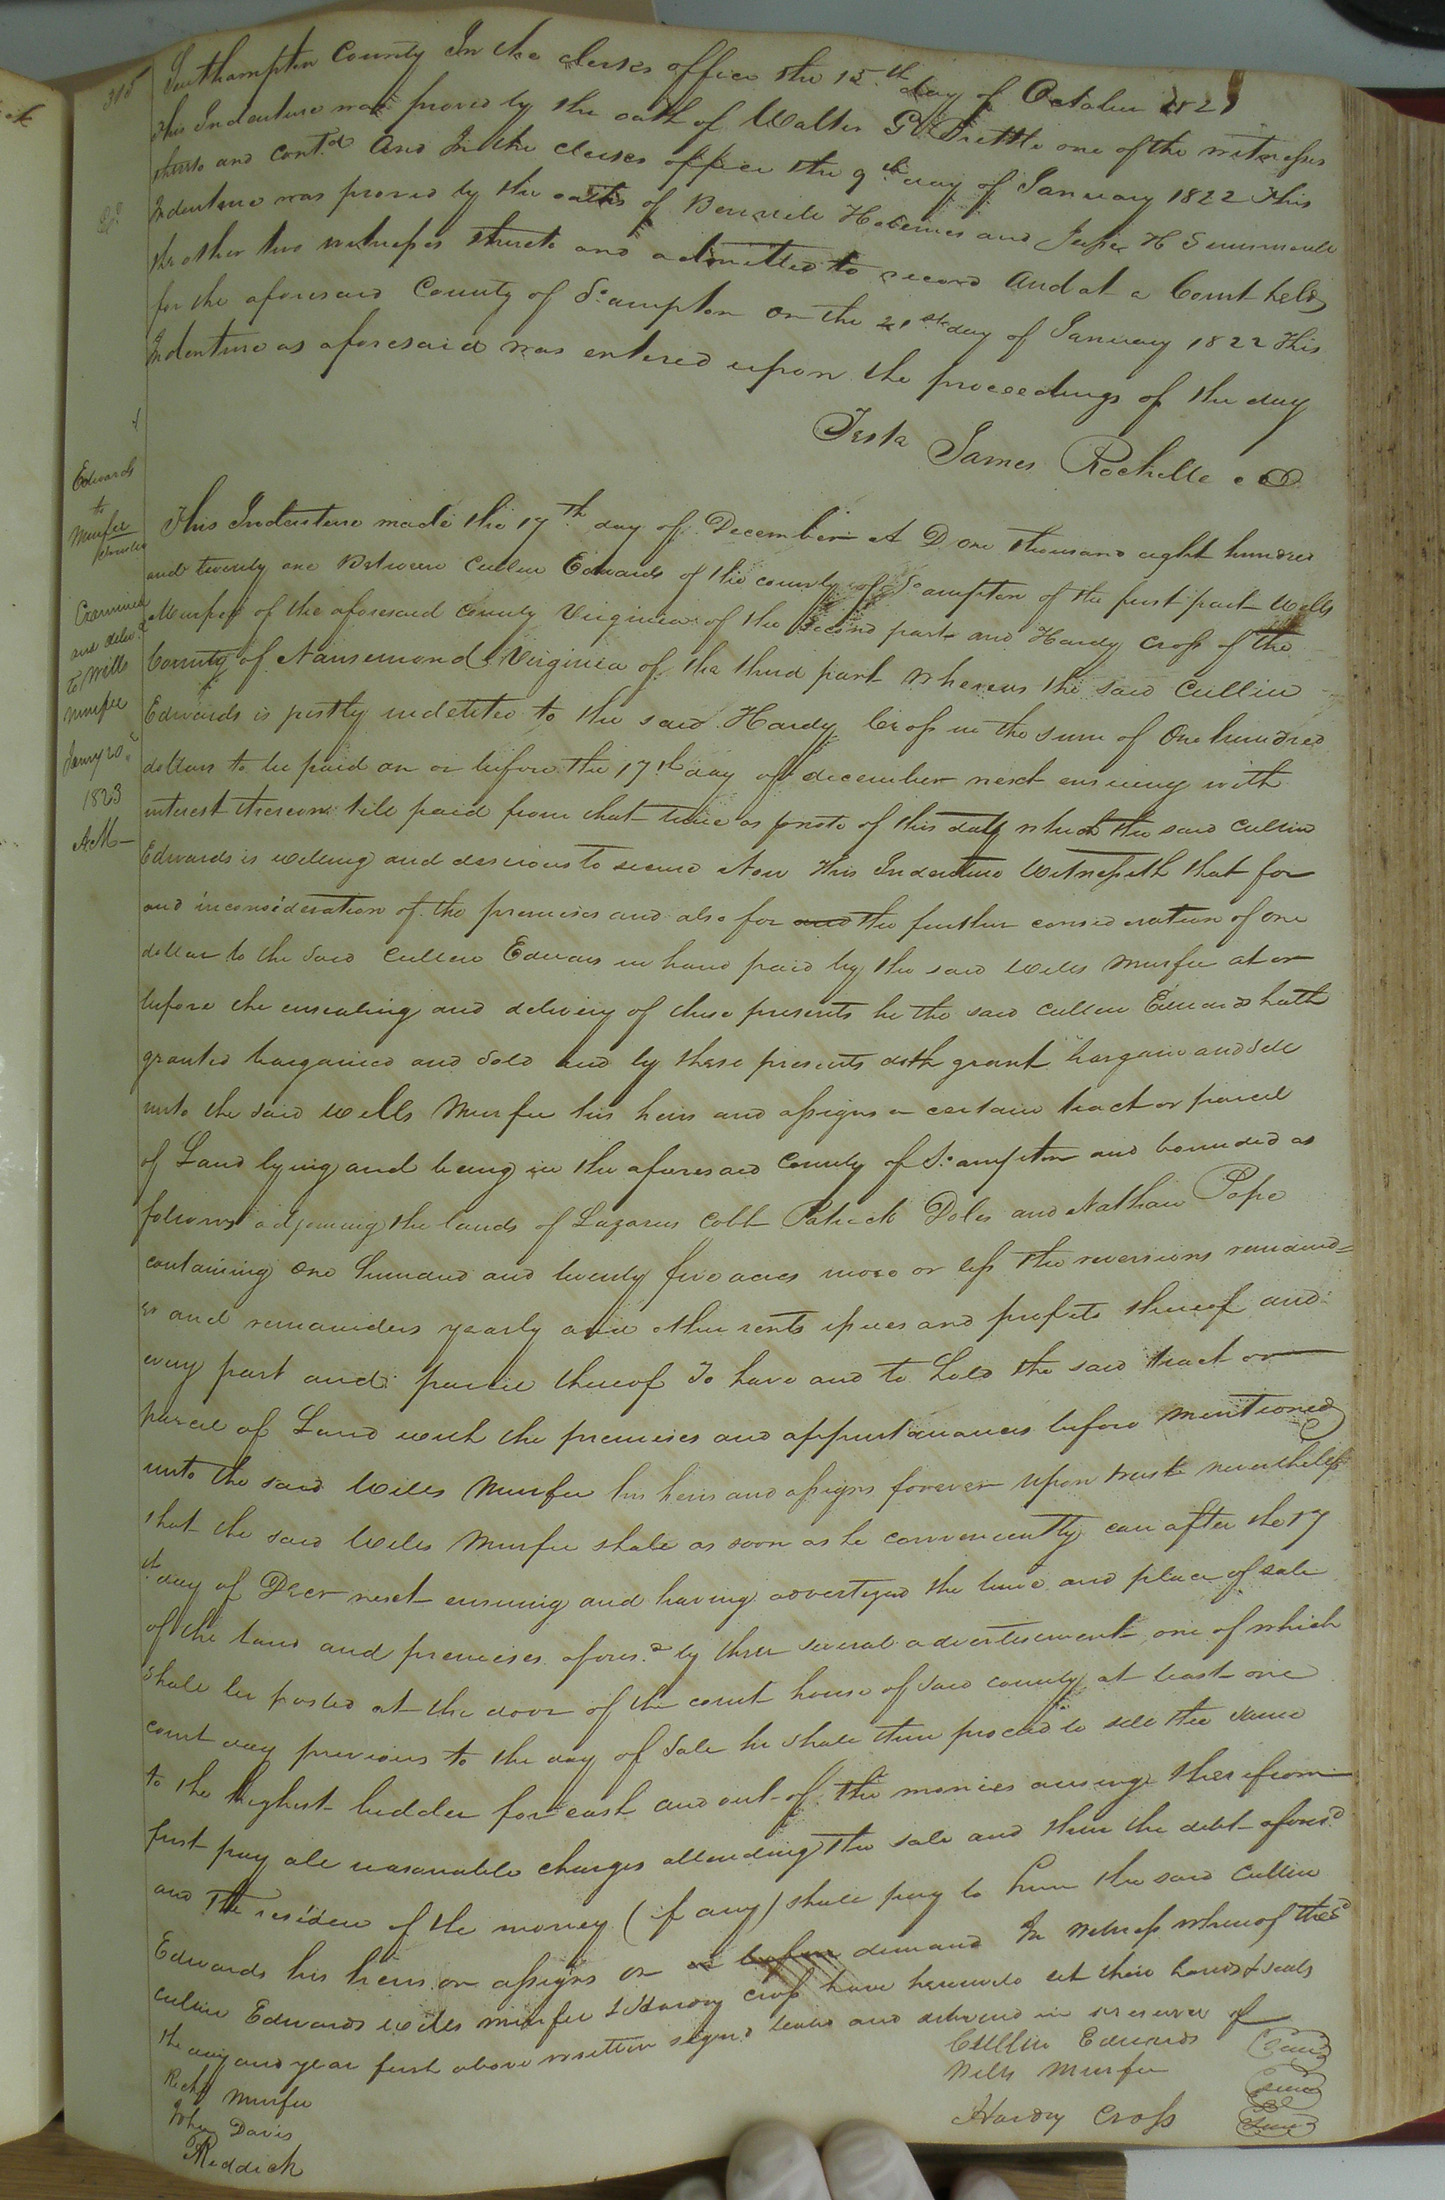 315
Southampton County In the clerks office the 15th day of October 1821
This Indenture was proved by the oath of Walter G Prettle one of the witnesses
thereto and cont.d And In the clerks office the 9th day of January 1822 This
Indenture was proved by the oaths of and H
the other two witnesses thereto and admitted to record And at a Court held
for the aforesaid County of So.ampton on the 21st day of January 1822 This
Indenture as aforesaid was entered upon the proceedings of the day
Teste James Rochelle
Edwards
to
Murfee
Examined
and deliv.d
to Wills
Murfee
Jany 20.
1823
AM
This Indenture made the 17th day of December A D one thousand eight hundred
and twenty one Between Cullin Edwards of the county of So.ampton of the first part Wills
Murfee of the aforesaid county Virginia of the second part and Hardy Cross of the
County of Nansemond Virginia of the third part Whereas the said Cullin
Edwards is justly indebted to the said Hardy Cross in the sum of One hundred
dollars to be paid on or before the 17th day of december next ensuing with
interest thereon till paid from that time as pr note of this date which the said Cullin
Edwards is willing and desirous to secure Now This Indenture Witnesseth that for
and inconsideration of the premises and also for and the further consideration of one
dollar to the said Cullin Edwards in hand paid by the said Wills Murfee at or
before the ensealing and delivery of these presents he the said Cullin Edwards hath
granted bargained and sold and by these presents doth grant bargain and sell
unto the said Wills Murfee his heirs and assigns a certain tract or parcel
of Land lying and being in the aforesaid County of So.ampton and bounded as
follows adjoining the lands of Lazarus Cobb Patrick Doles and Nathan Pope
containing One hundred and twenty five acres more or less the reversions remaind=
er and remainders yearly and other rents issues and profits thereof and
every part and parcel thereof To have and to hold the said tract or
parcel of Land with the premises and appurtanances before mentioned
unto the said Wills Murfee his heirs and assigns forever upon trust nevertheless
that the said Wills Murfee shall as soon as he conveniently can after the 17
th day of Decr next ensuing and having advertysed the time and place of sale
of the land and premises afores.d by three several advertisements one of which
shall be posted at the door of the court house of said county at least one
court day previous to the day of sale he shall then proceed to sell the same
to the highest bidder for cash and out of the monies arising therefrom
first pay all reasonable charges attending the sale and then the debt afores.d
and The residue of the money (if any) shall pay to him the said Cullin
Edwards his heirs or assigns on or before demand In witness whereof the sd
Cullin Edwards Wills Murfee & Hardy Cross have hereunto set their hands & seals
the day and year first above written signed sealed and delivered in presence of
Cullin Edwards (Seal)
Wills Murfee (Seal)
Hardy Cross (Seal)
Richd Murfee
John Davis
Riddick